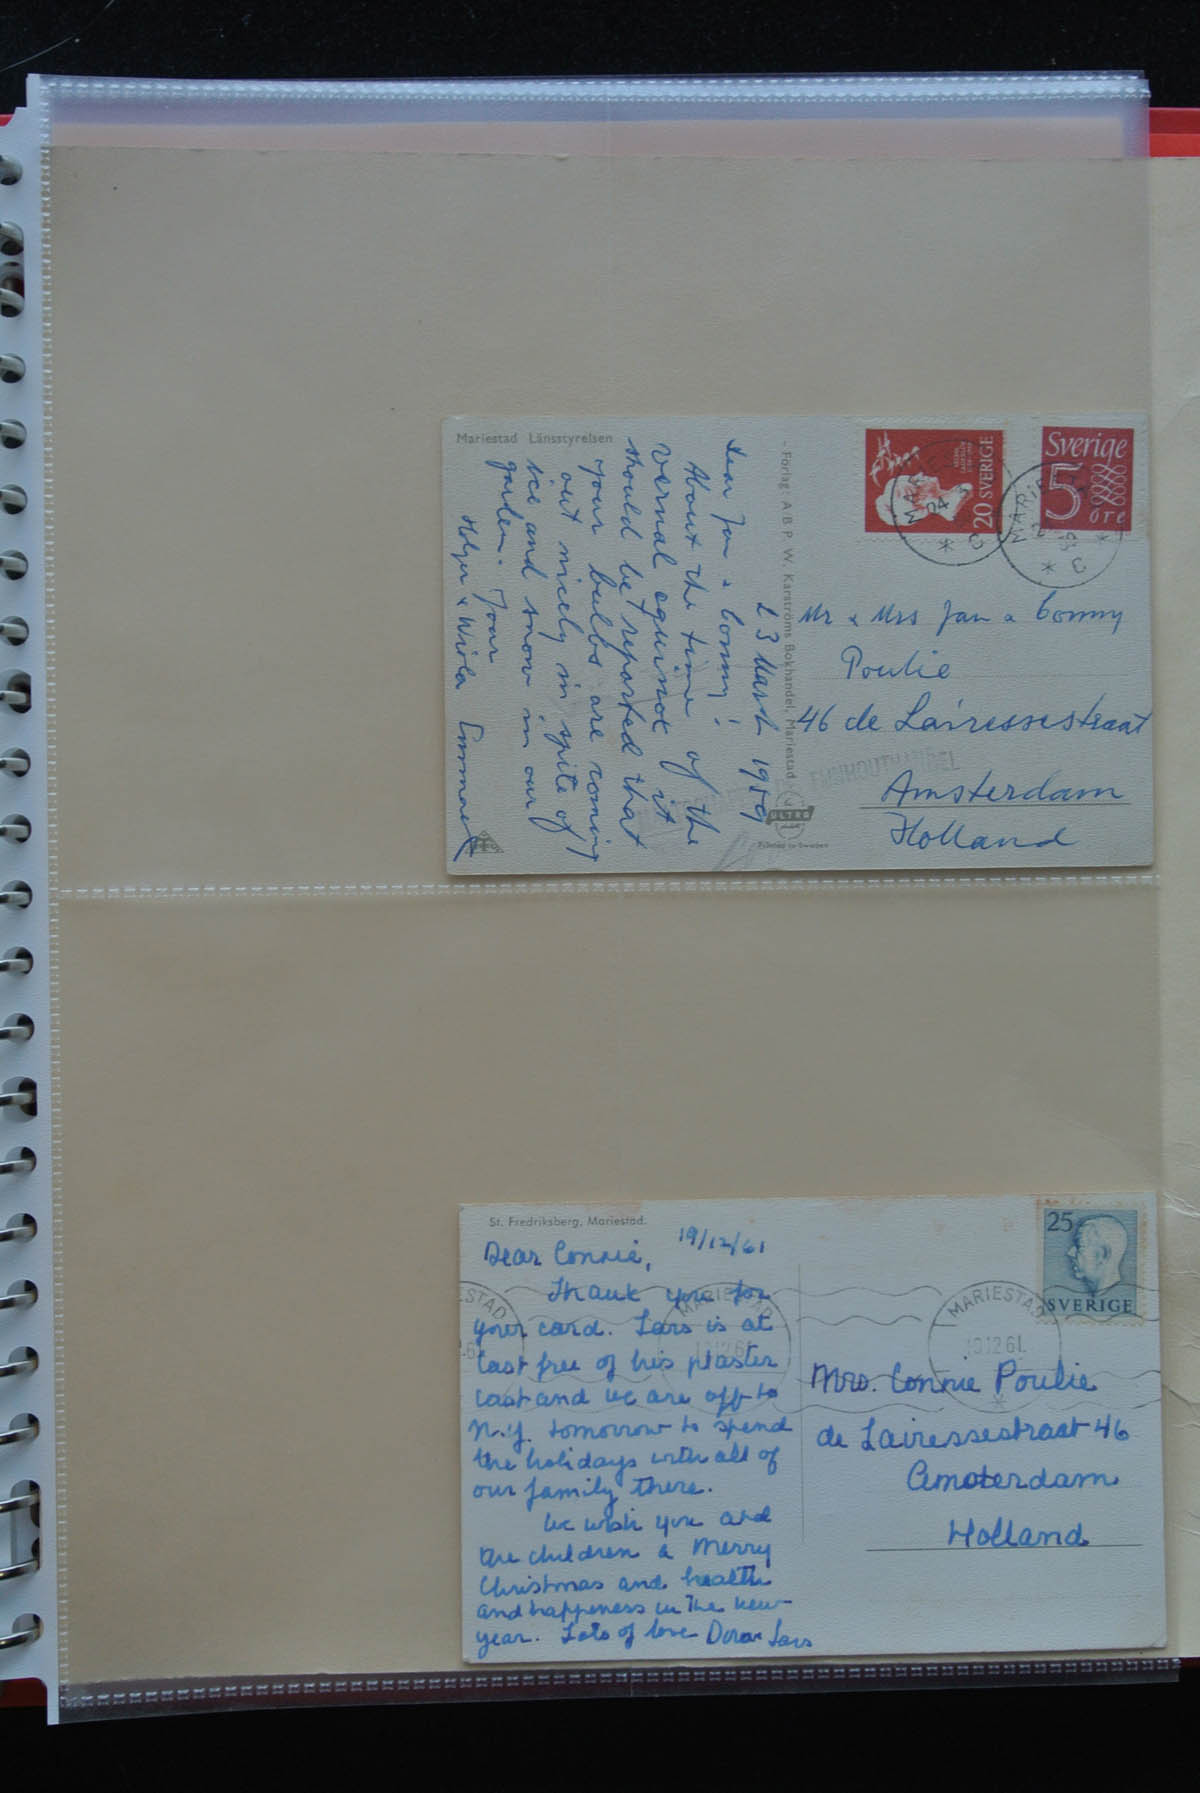 Mariestad Länsstyrelsen
23 March 1959
Dear Jan & Conny!
About the time of the
vernal equinox it
should be reported that
your bulbs are coming
out nicely in spite of
ice and snow in our
garden. Your
Holger &
- Förlag: A/B P. W. Karströms Bokhandel, Mariestad
ULTRA
Printed in Sweden
20 SVERIGE
Sverige
5
öre
MARIESTAD
MARIESTAD
Mr & Mrs Jan & Conny
Poulie
46 de Lairessestraat
Amsterdam
Holland
St. Fredriksberg, Mariestad.
19/12/61
Dear Connie,
Thank you for
your card. Lars is at
last free of his plaster
cast and we are off to
N.Y. tomorrow to spend
the holidays with all of
our family there.
We wish you and
the children a Merry
Christmas and health
and happiness in the new
year. Lots of love Dora & Lars
25
SVERIGE
MARIESTAD
MARIESTAD
12 61
Mrs. Connie Poulie
de Lairessestraat 46
Amsterdam
Holland